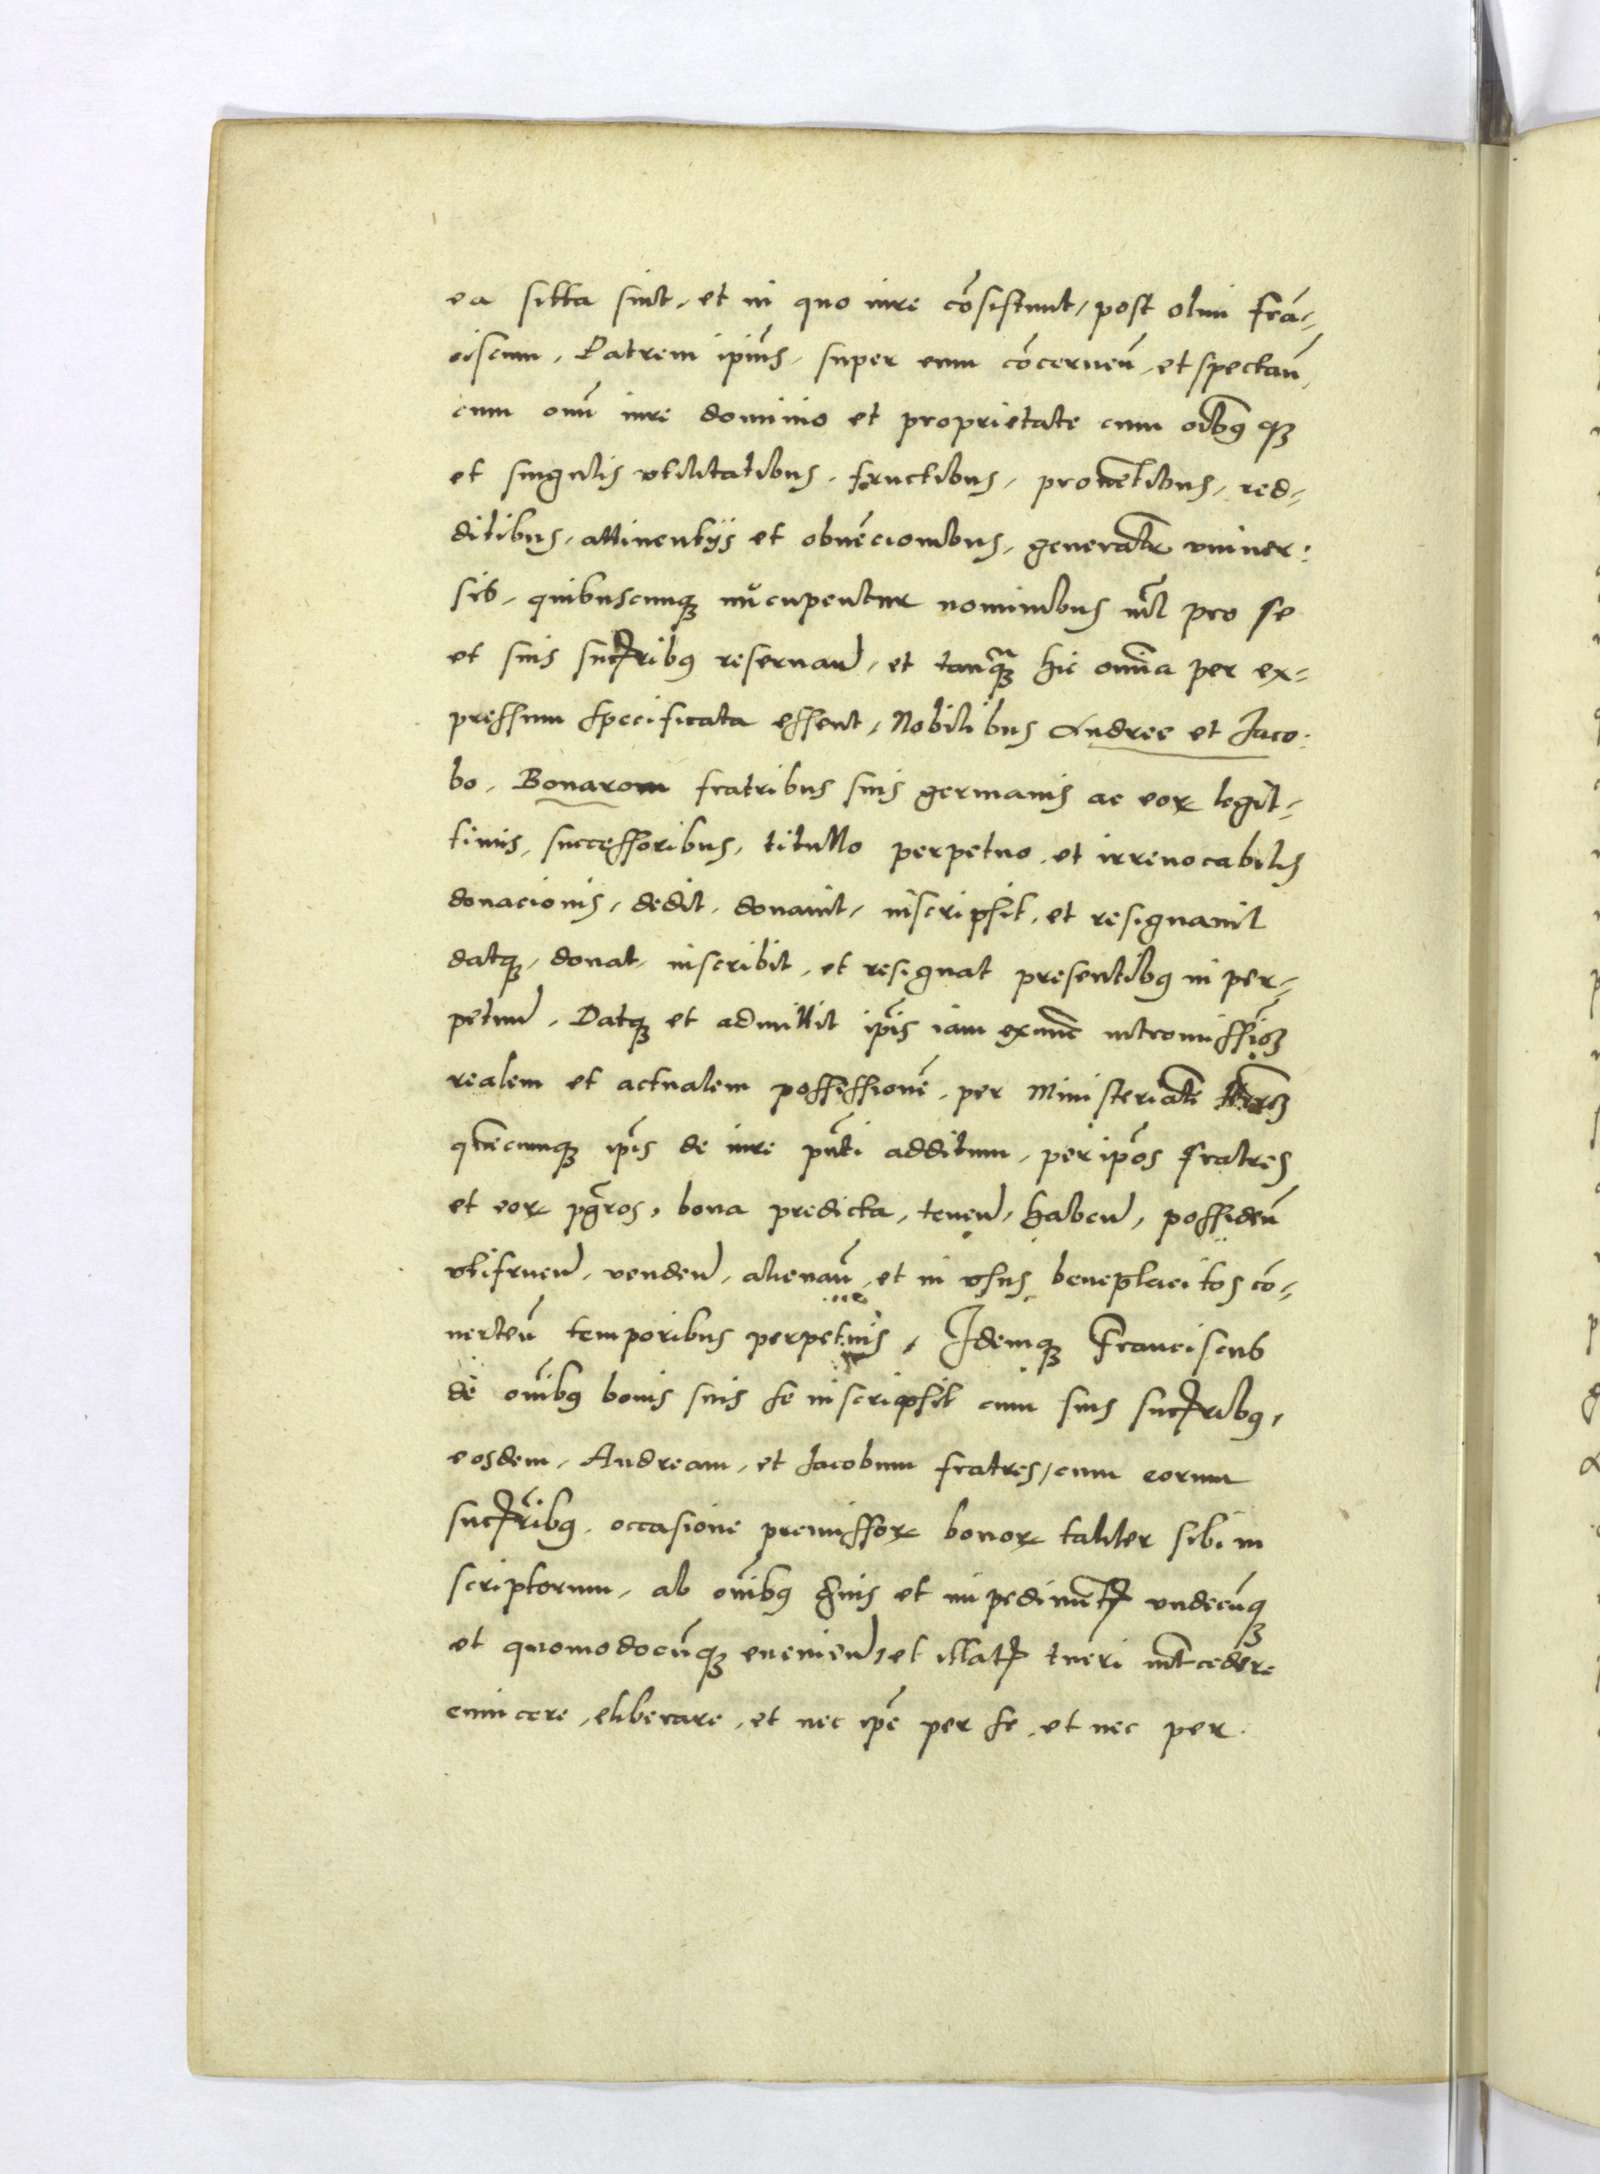 ea sitta sint, et in quo iure cōsistunt, post olim Frā=
ciscum, Patrem ipīus, super eum cōcerneñ, et spectañ,
cum omī iure dominio et proprietate cum oībus qȝ
et singulis vtilitatibus, fructibus, prouētibus, red=
ditibus, attinentijs et obuēcionibus, generalr vniuer:
sis, quibuscunqȝ nūcupentur nominibus nihil pro se
et suis sucribȩ reseruań, et tanqȝ hic omīa per ex=
pressum specificata essent, Nobilibus Andree et Jaco:
bo, Bonarom fratribus suis germanis ac eorꝝ legit=
timis, successoribus, titullo perpetuo, et irreuocabilis
donacionis, dedit, donauit, inscripsit, et resignauit
datqȝ, donat, inscribit, et resignat presentibȩ in per=
petuū, Datqȝ et admittit ip̄is iam exnunc intromissiōȝ
realem et actualem possessionē, per Ministerialē
qūecunqȝ ip̄is de iure p̄nti additum, per ip̄os fratres
et eorꝝ pḡros, bona predicta, teneń, habeń, possideñ
vtifrueń, vendeń, alienañ, et in vsus beneplacitos cō=
uerteñ temporibus perpetuis, Idemqȝ Franciscus
de om̄ibȩ bonis suis se inscripsit cum suis sucribȩ,
eosdem, Andream, et Jacobum fratres, cum eorum
sucribȩ, occasione premissorꝝ bonorꝝ taliter sibi in
scriptorum, ab om̄ibȩ et impedimētis vndecūqȝ
et quomodocūqȝ eueniēń, et illatis tueri intcedere
euincere, eliberare, et nec ip̄e per se, et nec per